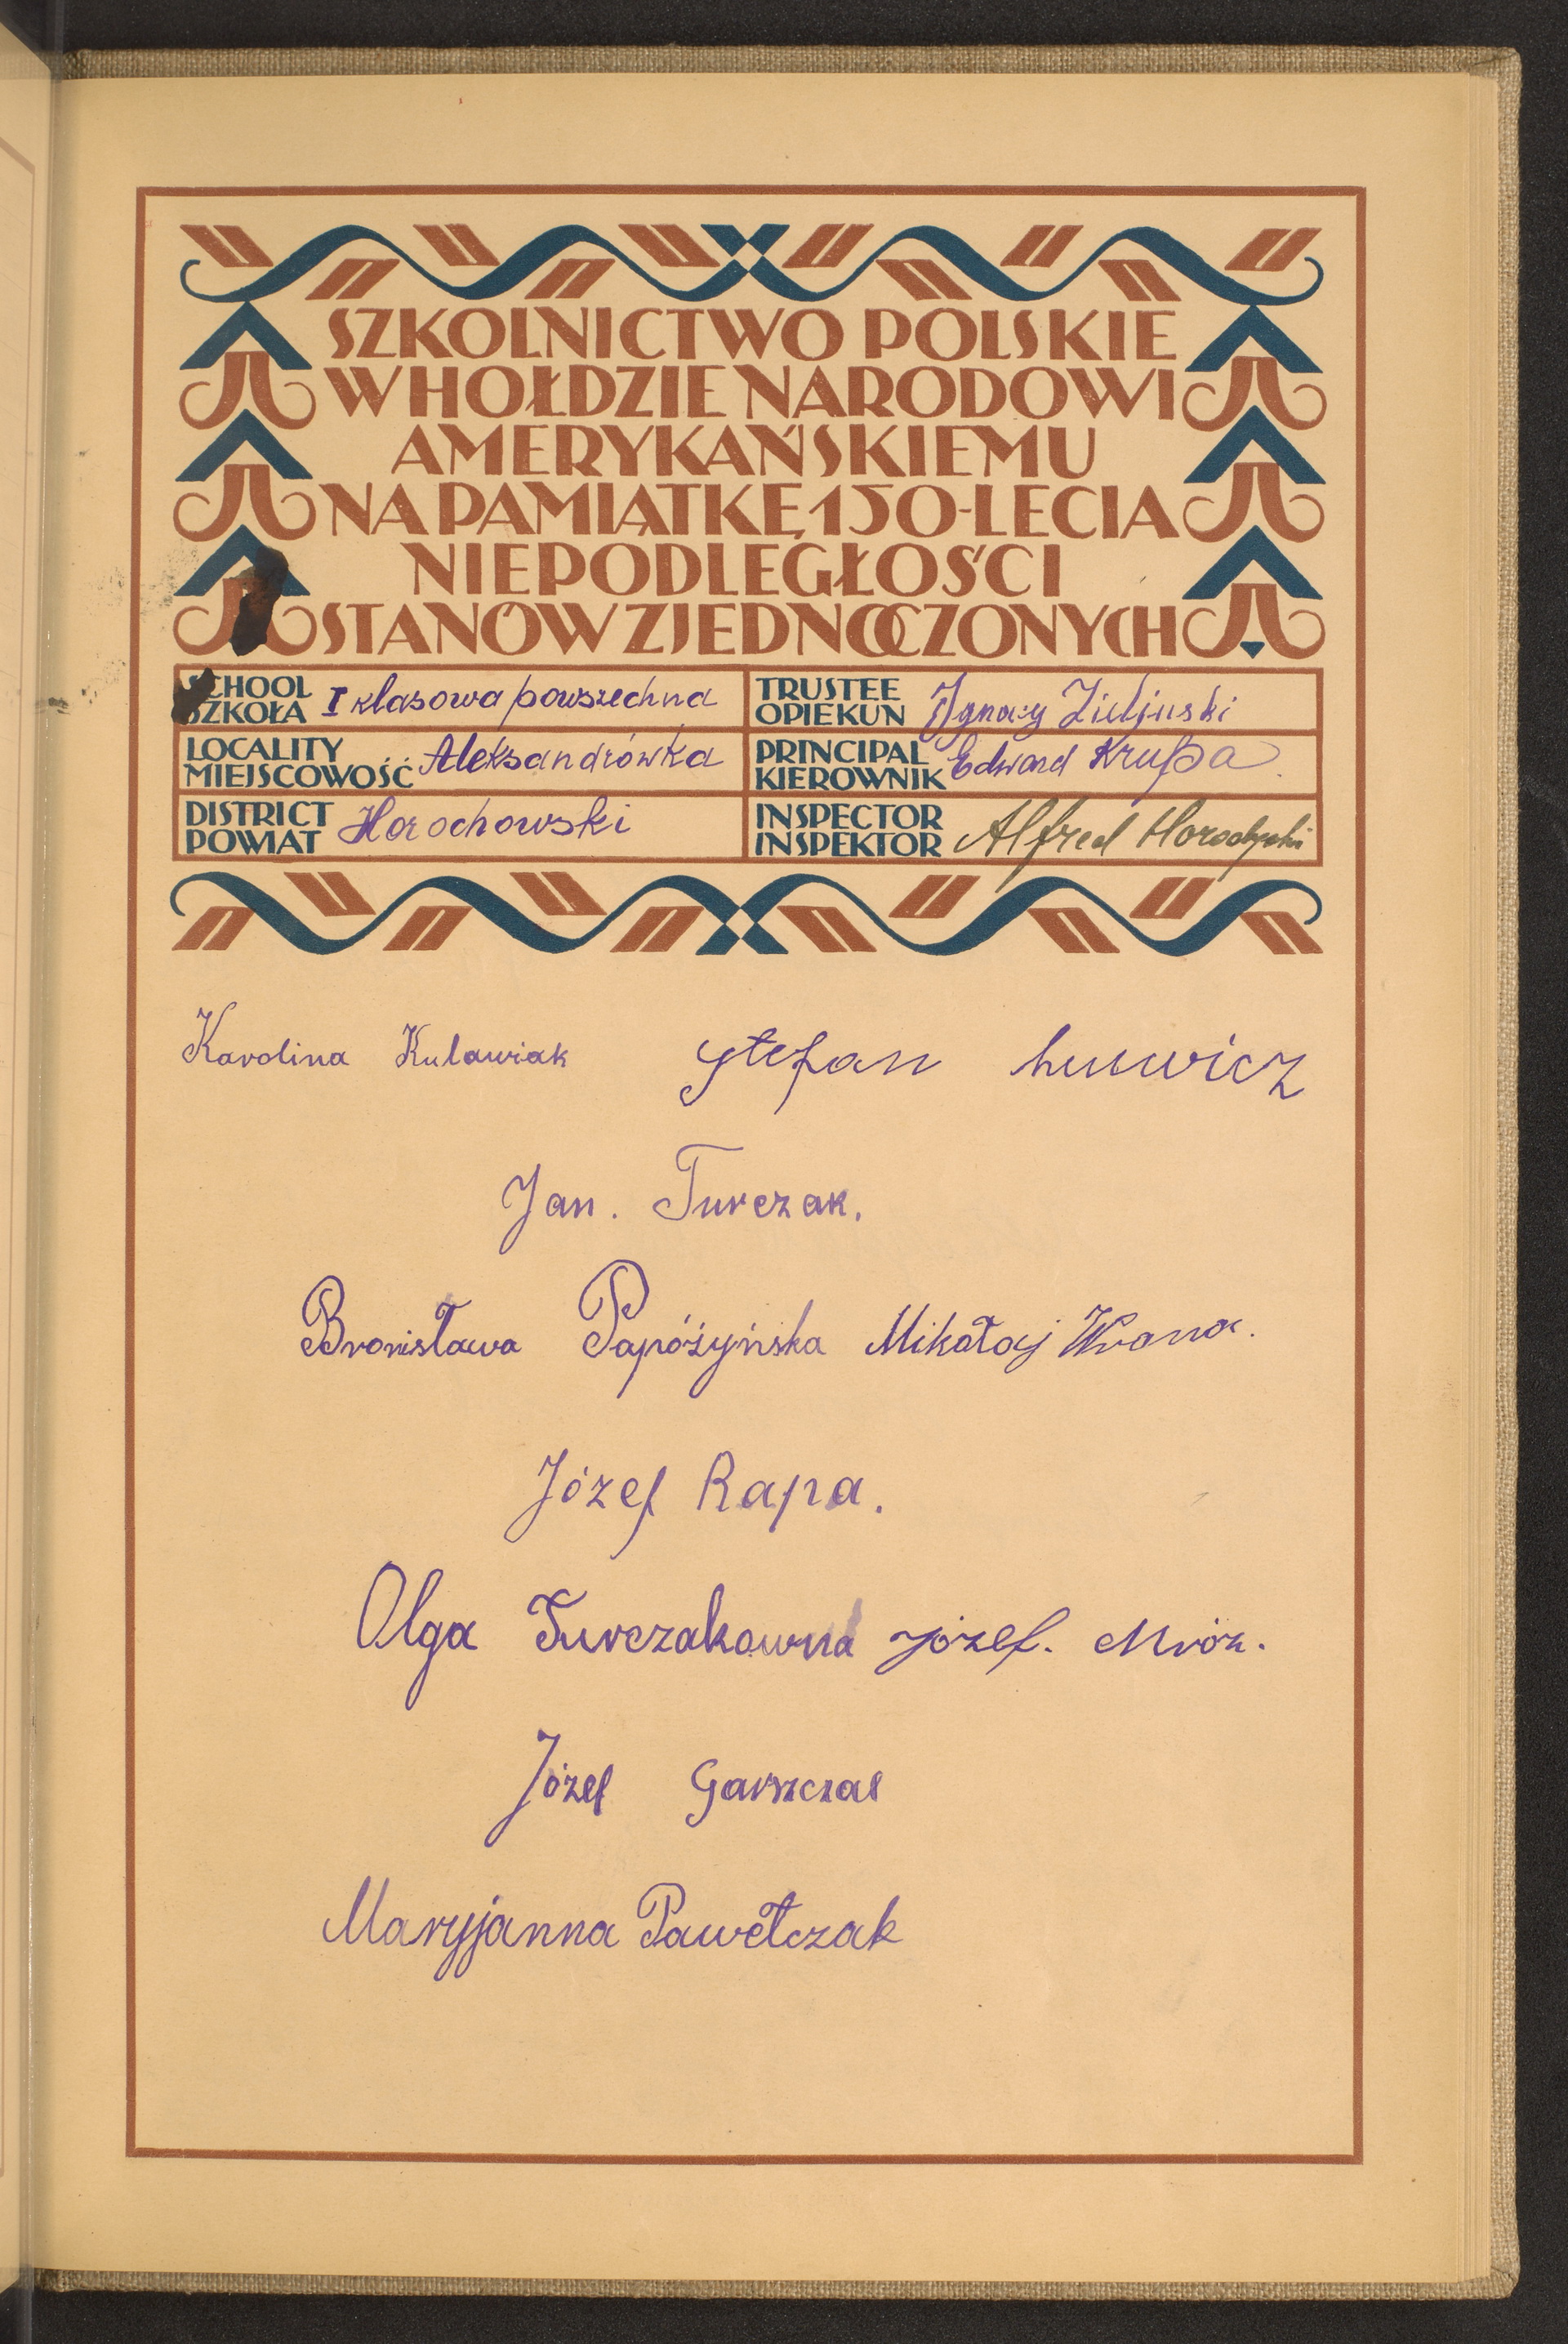 SZKOLNICTWO POLSKIE
W HOŁDZIE NARODOWI
AMERYKAŃSKIEMU
NA PAMIĄTKĘ 150-LECIA
NIEPODLEGŁOŚCI
STANÓW ZJEDNOCZONYCH
SCHOOL
SZKOŁA I klasowa powszechna
TRUSTEE
OPIEKUN Ignacy Zieljnski
LOCALITY
MIEJSCOWOŚĆ Aleksandrówka
PRINCIPAL
KIEROWNIK Edward Krupa
DISTRICT
POWIAT Horochowski
INSPECTOR
INSPEKTOR Alfred Horodyski
Karolina Kulawiak Stefan
Jan. Turczak.
Bronisława Papóżyńska Mikołaj Wrona.
Józef Rapa.
Olga Turczakowna Józef. Mróz.
Józef
Maryjanna Pawełczak